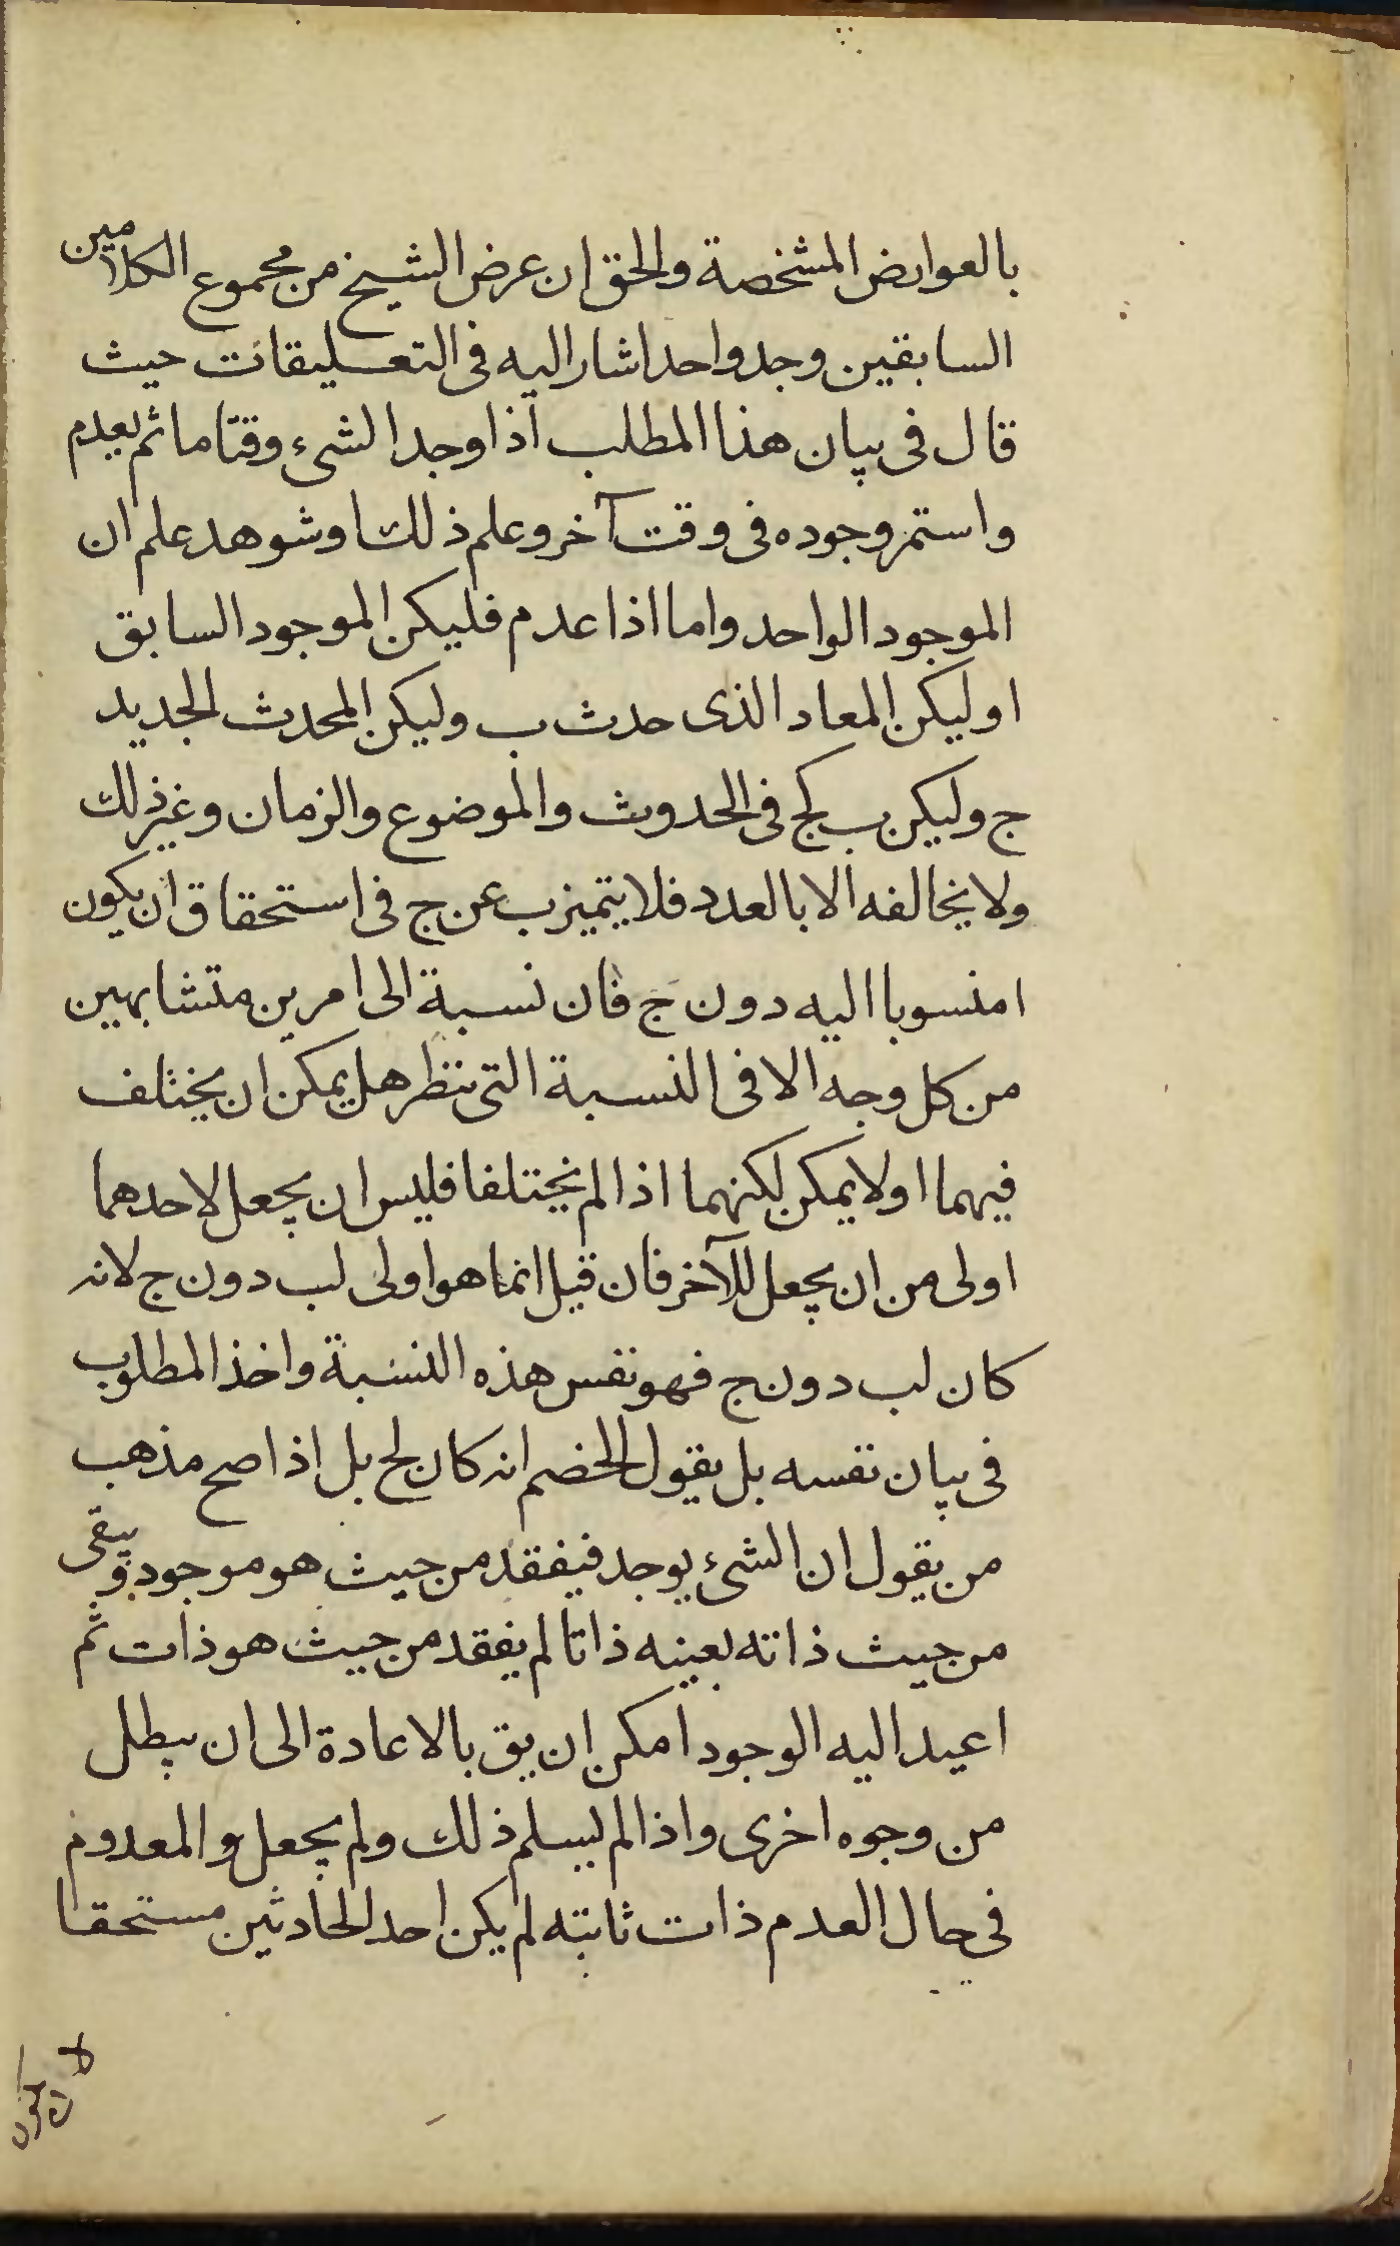 بالعوارض المشخصة والحق ان عرض الشيخ من مجموع الكلامين
السابقين وجد واحد اشار اليه فى التعليقات حيث
قال فى بيان هذا المطلب اذا وجد الشىء وقتا ما ثم يعدم
واستمر وجوده فى وقت آخر وعلم ذلك او شوهد علم ان
الموجود الواحد واما اذا عدم فليكن الموجود السابق
ا وليكن المعاد الذى حدث ب وليكن المحدث الجديد
ج وليكن ب كج فى الحدوث والموضوع والزمان وغير ذلك
ولا يخالفه الا بالعدد فلا يتميز ب عن ج فى استحقاق ان يكون
ا منسوبا اليه دون ج فان نسبة الى امرين متشابهين
من كل وجه الا فى النسبة التى ينظر هل يمكن ان يختلف
فيهما او لا يمكن لكنهما اذا لم يختلفا فليس ان يجعل لاحدهما
اولى من ان يجعل للآخر فان قيل انما هو اولى لب دون ج لانه
كان لب دون ج فهو نفس هذه النسبة واخذ المطلوب
فى بيان نفسه بل يقول الخصم انه كان لج بل اذا صح مذهب
من يقول ان الشىء يوجد فيفقد من حيث هو موجود ويبقى
من حيث ذاته بعينه ذاتا لم يفقد من حيث هو ذات ثم
اعيد اليه الوجود امكن ان يق بالاعادة الى ان يبطل
من وجوه اخرى واذا لم يسلم ذلك ولم يجعل و المعدوم
فى حال العدم ذات ثابته لم يكن احد الحادثين مستحقا
لان يكون